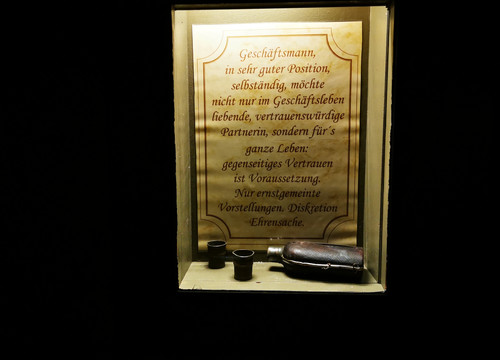 Geschäftsmann,
in sehr guter Position,
selbständig, möchte
nicht nur im Geschäftsleben
liebende, vertrauenswürdige
Partnerin, sondern für´s
ganze Leben:
gegenseitiges Vertrauen
ist Voraussetzung.
Nur ernstgemeinte
Vorstellungen, Diskretion
Ehrensache.